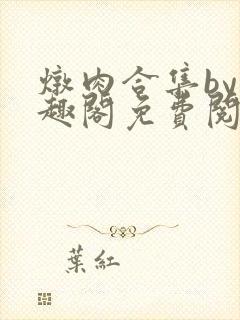 燉肉合集by
趣閣免費閱
葉紅